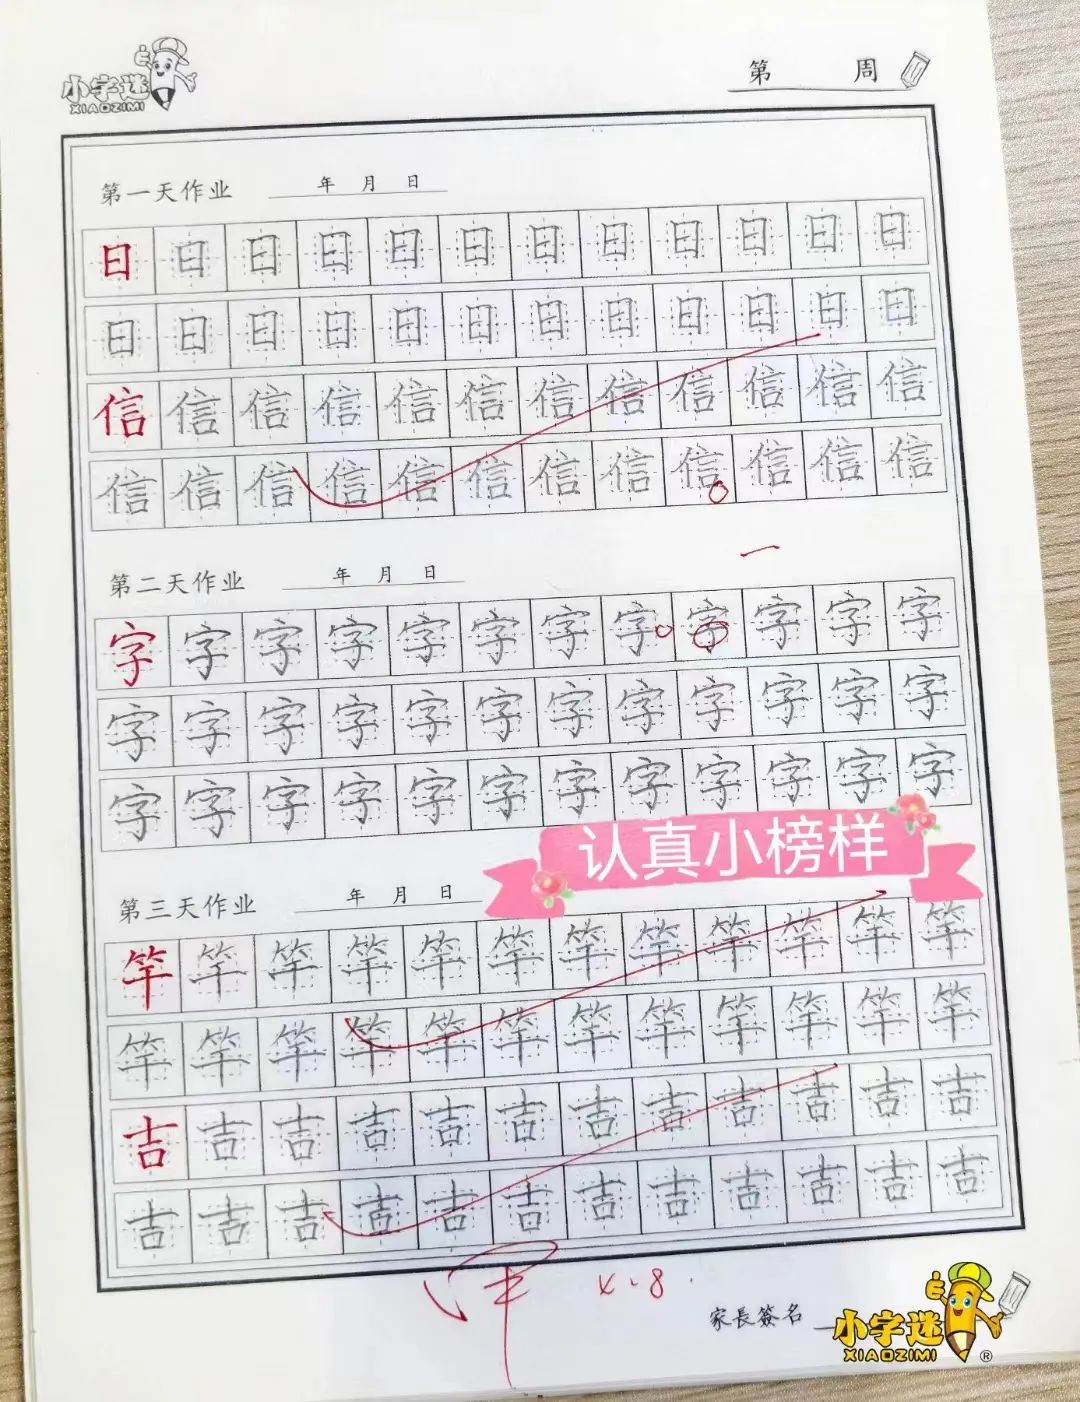 小字迷
XIAOZIMI
第 周
第一天作业 年 月 日
日日日日日日日日日日日日
日日日日日日日日日日日日
信信信信信信信信信信信信
信信信信信信信信信信信信
第二天作业 年 月 日
字字字字字字字字字字字字
字字字字字字字字字字字字
字字字字字字字字字字字字
认真小榜样
第三天作业 年 月 日
竿竿竿竿竿竿竿竿竿竿竿竿
竿竿竿竿竿竿竿竿竿竿竿竿
吉吉吉吉吉吉吉吉吉吉吉吉
吉吉吉吉吉吉吉吉吉吉吉吉
家長簽名
小字迷
XIAOZIMI®